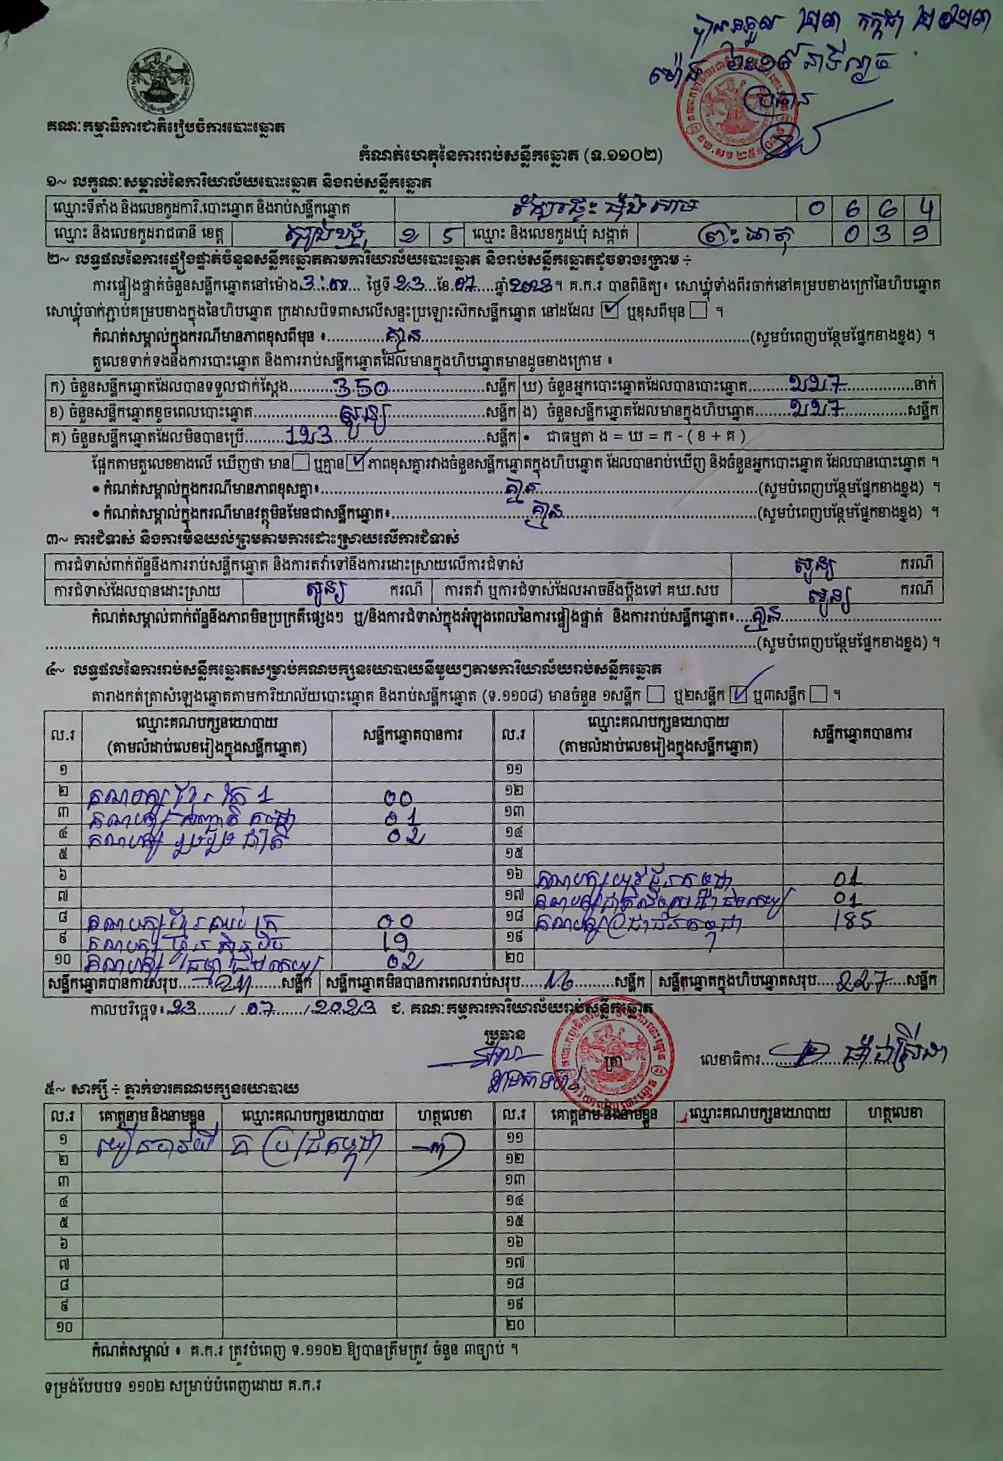 បានទទួល ២៣ កក្កដា ២០២៣
ម៉ោង
ប្រធាន
គណៈកម្មាធិការជាតិរៀបចំការបោះឆ្នោត
កំណត់ហេតុនៃការរាប់សន្លឹកឆ្នោត (ទ.១១០២)
១~ លក្ខណៈសម្គាល់នៃការិយាល័យបោះឆ្នោត និងរាប់សន្លឹកឆ្នោត
ឈ្មោះទីតាំង និងលេខកូដការិ.បោះឆ្នោត និងរាប់សន្លឹកឆ្នោត 0 6 6 4
ឈ្មោះ និងលេខកូដរាជធានី ខេត្ត 1 5 ឈ្មោះ និងលេខកូដឃុំ សង្កាត់ 0 3 9
២~ លទ្ធផលនៃការផ្ទៀងផ្ទាត់ចំនួនសន្លឹកឆ្នោតតាមការិយាល័យបោះឆ្នោត និងរាប់សន្លឹកឆ្នោតដូចខាងក្រោម ÷
ការផ្ទៀងផ្ទាត់ចំនួនសន្លឹកឆ្នោតនៅម៉ោង 3:00 ថ្ងៃទី 23 ខែ 07 ឆ្នាំ 2023។ គ.ក.រ បានពិនិត្យ៖ សោឃ្លុំទាំងពីរចាក់នៅគម្របខាងក្រៅនៃហិបឆ្នោត
សោឃ្លុំចាក់ភ្ជាប់គម្របខាងក្នុងនៃហិបឆ្នោត ក្រដាសបិទពាសលើសន្ទះប្រឡោះសិកសន្លឹកឆ្នោត នៅដដែល ☑ ឬខុសពីមុន ☐ ។
កំណត់សម្គាល់ក្នុងករណីមានភាពខុសពីមុន ៖ គ្មាន (សូមបំពេញបន្ថែមផ្នែកខាងខ្នង) ។
តួលេខទាក់ទងនឹងការបោះឆ្នោត និងការរាប់សន្លឹកឆ្នោតដែលមានក្នុងហិបឆ្នោតមានដូចខាងក្រោម ៖
ក) ចំនួនសន្លឹកឆ្នោតដែលបានទទួលជាក់ស្ដែង 350 សន្លឹក ឃ) ចំនួនអ្នកបោះឆ្នោតដែលបានបោះឆ្នោត 227 នាក់
ខ) ចំនួនសន្លឹកឆ្នោតខូចពេលបោះឆ្នោត សូន្យ សន្លឹក ង) ចំនួនសន្លឹកឆ្នោតដែលមានក្នុងហិបឆ្នោត 227 សន្លឹក
គ) ចំនួនសន្លឹកឆ្នោតដែលមិនបានប្រើ 123 សន្លឹក • ជាធម្មតា ង = ឃ = ក - ( ខ + គ )
ផ្អែកតាមតួលេខខាងលើ ឃើញថា មាន ☐ ឬគ្មាន ☑ ភាពខុសគ្នារវាងចំនួនសន្លឹកឆ្នោតក្នុងហិបឆ្នោត ដែលបានរាប់ឃើញ និងចំនួនអ្នកបោះឆ្នោត ដែលបានបោះឆ្នោត ។
• កំណត់សម្គាល់ក្នុងករណីមានភាពខុសគ្នា៖ គ្មាន (សូមបំពេញបន្ថែមផ្នែកខាងខ្នង) ។
• កំណត់សម្គាល់ក្នុងករណីមានវត្ថុមិនមែនជាសន្លឹកឆ្នោត៖ គ្មាន (សូមបំពេញបន្ថែមផ្នែកខាងខ្នង) ។
៣~ ការជំទាស់ និងការមិនយល់ព្រមតាមការដោះស្រាយលើការជំទាស់
ការជំទាស់ពាក់ព័ន្ធនឹងការរាប់សន្លឹកឆ្នោត និងការតវ៉ាទៅនឹងការដោះស្រាយលើការជំទាស់ សូន្យ ករណី
ការជំទាស់ដែលបានដោះស្រាយ សូន្យ ករណី ការតវ៉ា ឬការជំទាស់ដែលអាចនឹងប្ដឹងទៅ គឃ.សប សូន្យ ករណី
កំណត់សម្គាល់ពាក់ព័ន្ធនឹងភាពមិនប្រក្រតីផ្សេងៗ ឬ/និងការជំទាស់ក្នុងអំឡុងពេលនៃការផ្ទៀងផ្ទាត់ និងការរាប់សន្លឹកឆ្នោត៖ គ្មាន
(សូមបំពេញបន្ថែមផ្នែកខាងខ្នង) ។
៤~ លទ្ធផលនៃការរាប់សន្លឹកឆ្នោតសម្រាប់គណបក្សនយោបាយនីមួយៗតាមការិយាល័យរាប់សន្លឹកឆ្នោត
តារាងកត់ត្រាសំឡេងឆ្នោតតាមការិយាល័យបោះឆ្នោត និងរាប់សន្លឹកឆ្នោត (ទ.១១០៨) មានចំនួន ១សន្លឹក ☐ ឬ២សន្លឹក ☑ ឬ៣សន្លឹក ☐ ។
ល.រ ឈ្មោះគណបក្សនយោបាយ (តាមលំដាប់លេខរៀងក្នុងសន្លឹកឆ្នោត) សន្លឹកឆ្នោតបានការ ល.រ ឈ្មោះគណបក្សនយោបាយ (តាមលំដាប់លេខរៀងក្នុងសន្លឹកឆ្នោត) សន្លឹកឆ្នោតបានការ
១ ១១
២ គណបក្ស 00 ១២
៣ គណបក្ស 01 ១៣
៤ គណបក្ស 02 ១៤
៥ ១៥
៦ ១៦ គណបក្ស 01
៧ ១៧ គណបក្ស 01
៨ គណបក្ស 00 ១៨ គណបក្សប្រជាជនកម្ពុជា 185
៩ គណបក្ស 19 ១៩
១០ គណបក្ស 02 ២០
សន្លឹកឆ្នោតបានការសរុប 211 សន្លឹក សន្លឹកឆ្នោតមិនបានការពេលរាប់សរុប 16 សន្លឹក សន្លឹកឆ្នោតក្នុងហិបឆ្នោតសរុប 227 សន្លឹក
កាលបរិច្ឆេទ៖ 23 / 07 / 2023 ជ. គណៈកម្មការការិយាល័យរាប់សន្លឹកឆ្នោត
ប្រធាន
ត្រា
លេខាធិការ
៥~ សាក្សី ÷ ភ្នាក់ងារគណបក្សនយោបាយ
ល.រ គោត្តនាម និងនាមខ្លួន ឈ្មោះគណបក្សនយោបាយ ហត្ថលេខា ល.រ គោត្តនាម និងនាមខ្លួន ឈ្មោះគណបក្សនយោបាយ ហត្ថលេខា
១ ១១
២ ១២
៣ ១៣
៤ ១៤
៥ ១៥
៦ ១៦
៧ ១៧
៨ ១៨
៩ ១៩
១០ ២០
កំណត់សម្គាល់ ៖ គ.ក.រ ត្រូវបំពេញ ទ.១១០២ ឱ្យបានត្រឹមត្រូវ ចំនួន ៣ច្បាប់ ។
ទម្រង់បែបបទ ១១០២ សម្រាប់បំពេញដោយ គ.ក.រ